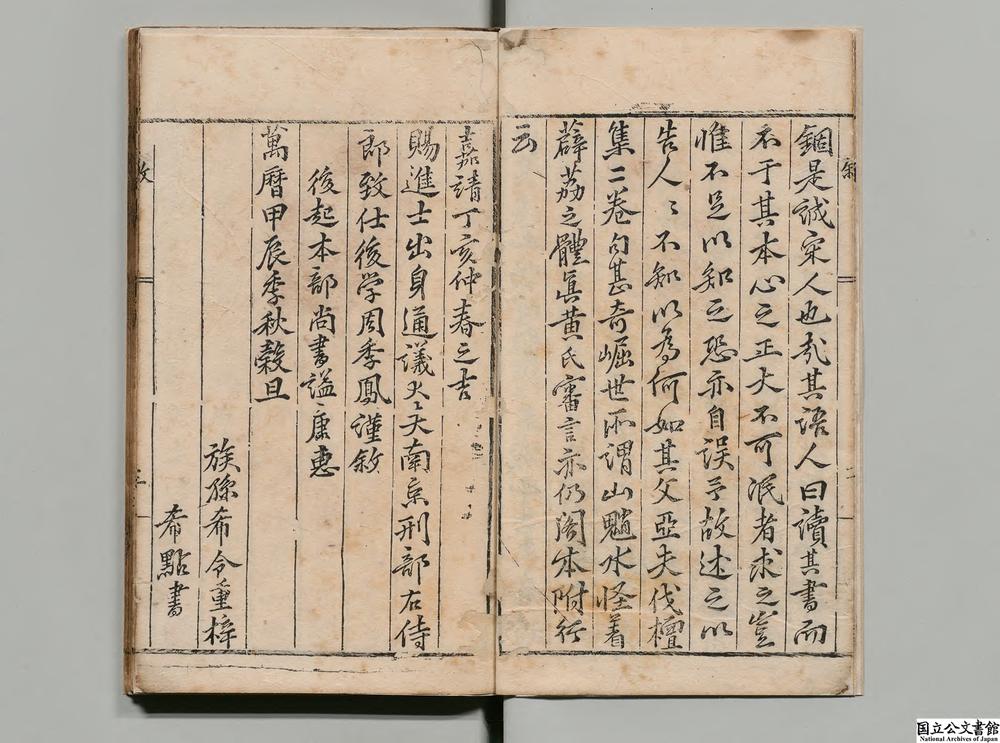 錮是誠宋人也哉其語人曰讀其書而
不于其本心之正大不可泯者求之豈
惟不足以知之恐亦自誤予故述之以
告人〻不知以為何如其父亞夫伐檀
集二卷句甚奇崛世所謂山魈水怪着
薜荔之體眞黄氏審言亦仍閣本附行
云
敘
二
嘉靖丁亥仲春之吉
賜進士出身通議大夫南京刑部右侍
郎致仕後学周季鳳謹敘
後起本部尚書謚康惠
萬曆甲辰季秋穀旦
族孫希令重梓
希點書
敘
三
国立公文書館
National Archives of Japan